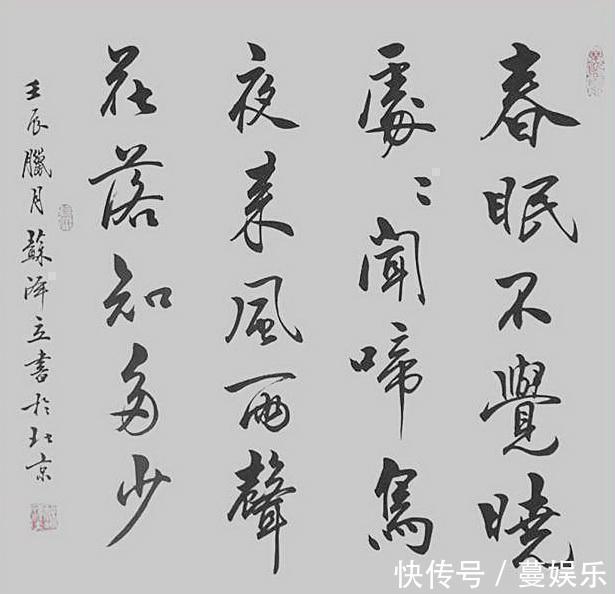 春眠不覺曉
處〻聞啼鳥
夜來風雨聲
花落知多少
壬辰臘月蘇澤立書於北京
快传号/蔓娱乐